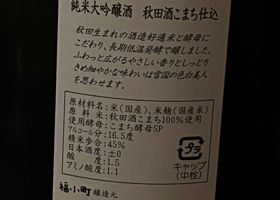 純米大吟醸酒 秋田酒こまち仕込
秋田生まれの酒造好適米と酵母に
こだわり、長期低温発酵で醸しました。
ふわっと広がるやさしい香りとしっとり
きめ細やかな味わいは雪国の色白美人
を思わせます。
原材料名:米(国産)、米麹(国産米)
原料米:秋田酒こまち100%使用
使用酵母:こまち酵母SP
アルコール分:16.5度
精米歩合:45%
日本酒度:±0
酸度:1.5
アミノ酸度:1.1
プラ
キャップ
(中栓)
福小町 醸造元